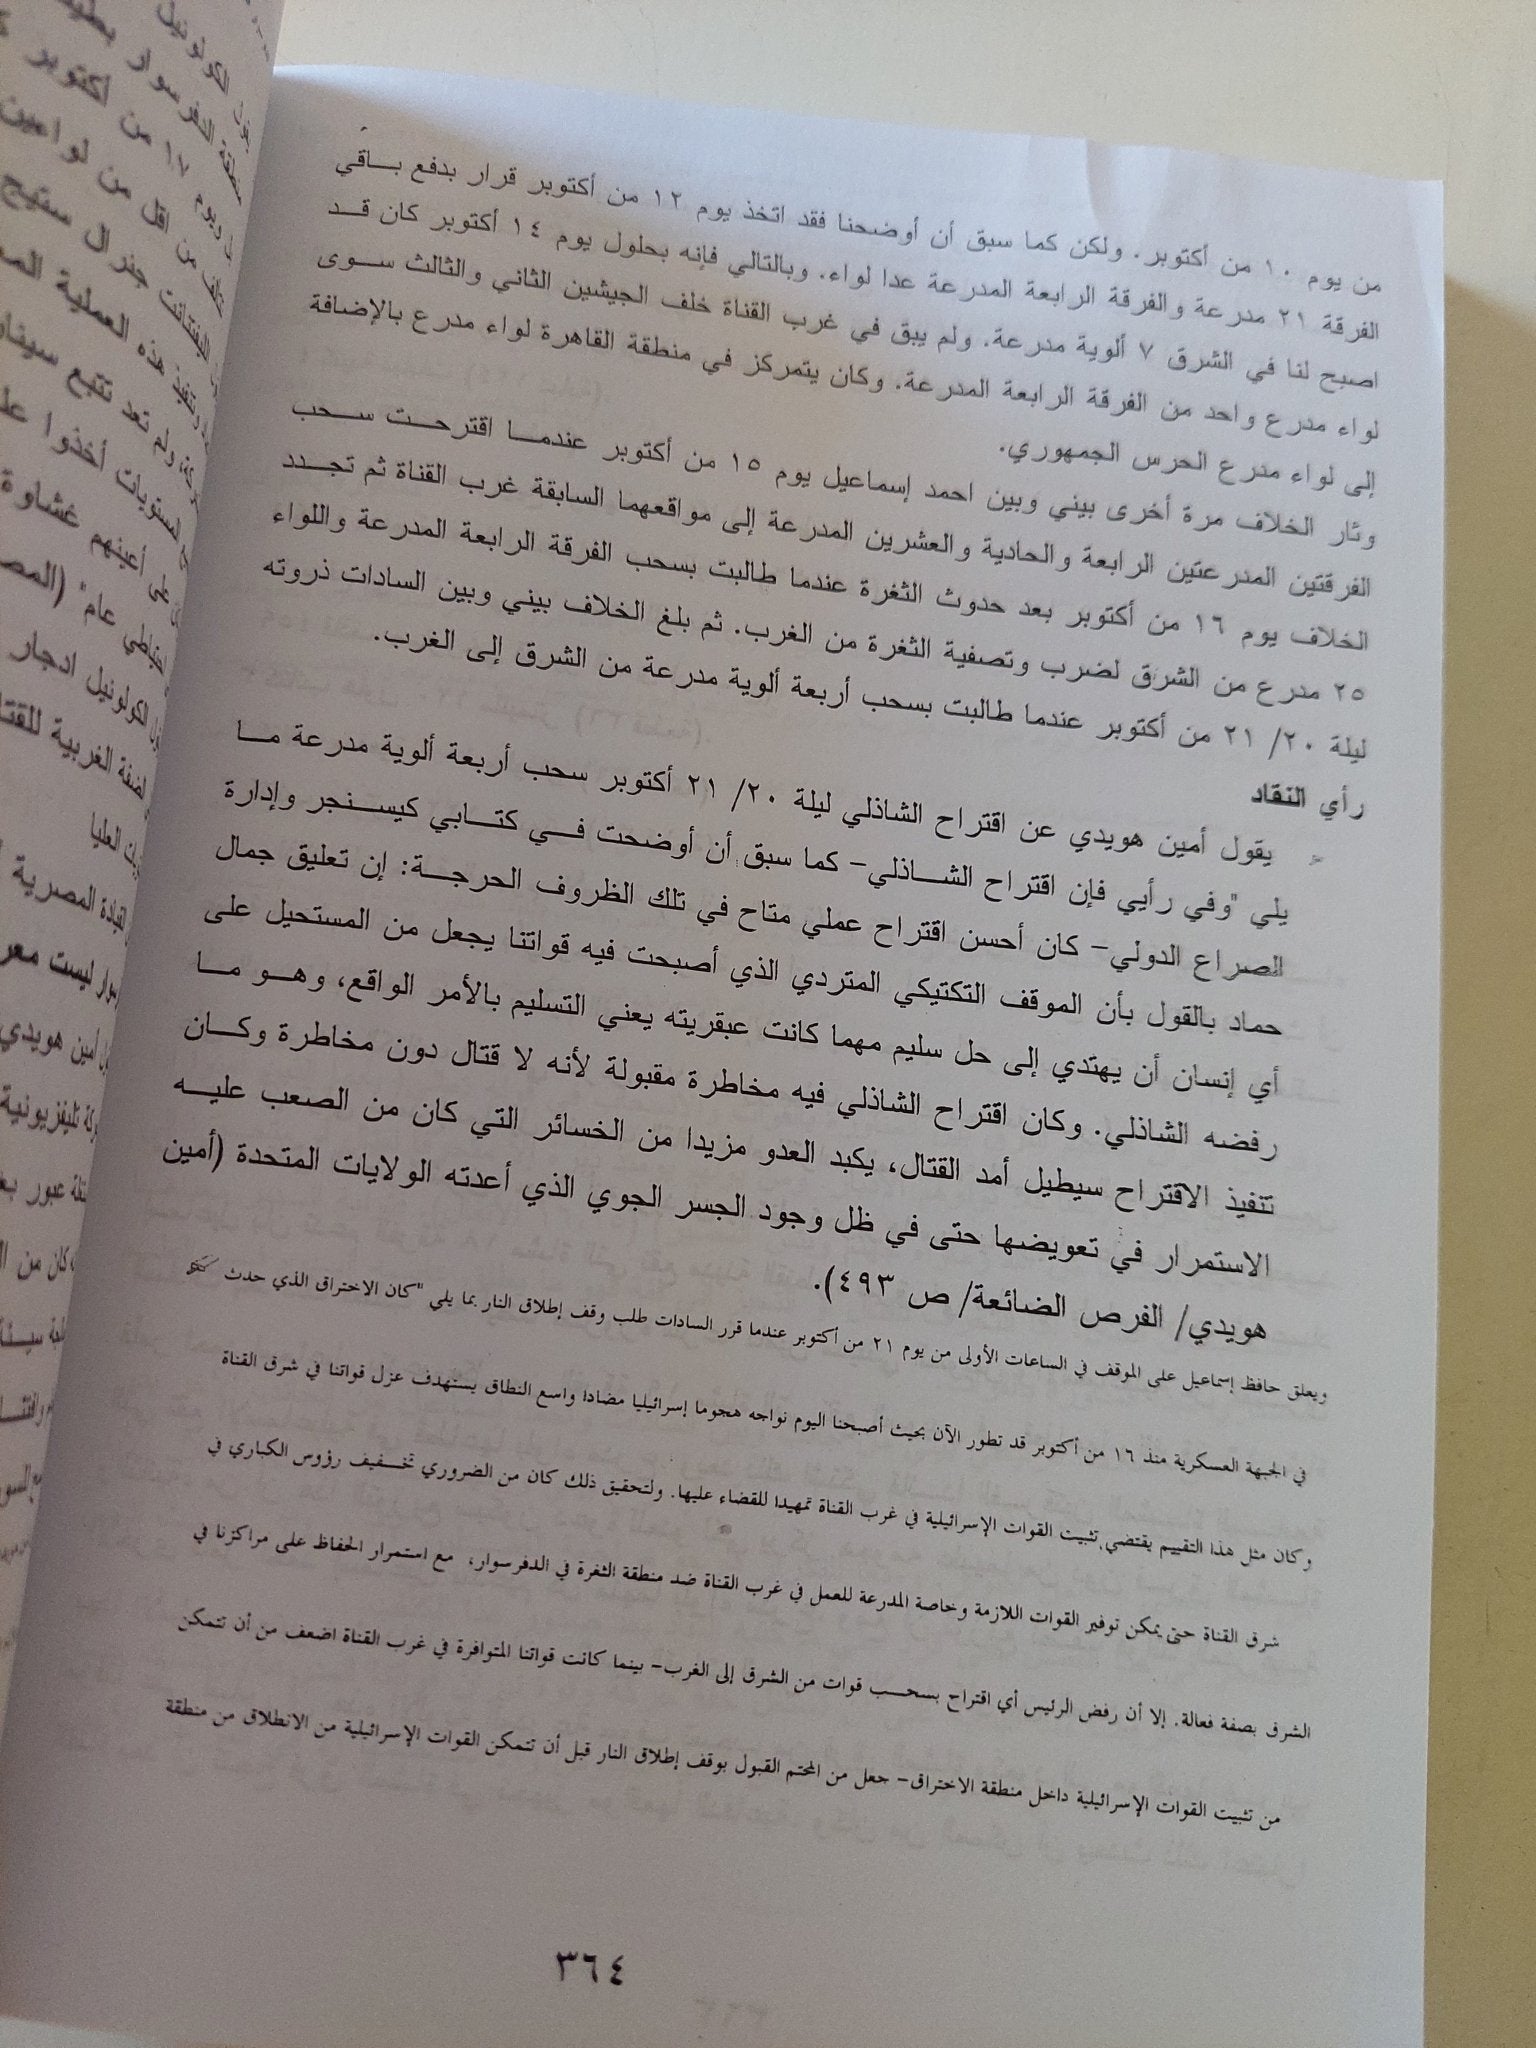 من يوم ١٠ من أكتوبر. ولكن كما سبق أن أوضحنا فقد اتخذ يوم ١٢ من أكتوبر قرار بدفع باقي
الفرقة ٢١ مدرعة والفرقة الرابعة المدرعة عدا لواء. وبالتالي فإنه بحلول يوم ١٤ أكتوبر كان قد
اصبح لنا في الشرق ٧ ألوية مدرعة. ولم يبق في غرب القناة خلف الجيشين الثاني والثالث سوى
لواء مدرع واحد من الفرقة الرابعة المدرعة. وكان يتمركز في منطقة القاهرة لواء مدرع بالإضافة
إلى لواء مدرع الحرس الجمهوري.
وثار الخلاف مرة أخرى بيني وبين احمد إسماعيل يوم ١٥ من أكتوبر عندما اقترحت سحب
الفرقتين المدرعتين الرابعة والحادية والعشرين المدرعة إلى مواقعهما السابقة غرب القناة ثم تجدد
الخلاف يوم ١٦ من أكتوبر بعد حدوث الثغرة عندما طالبت بسحب الفرقة الرابعة المدرعة واللواء
٢٥ مدرع من الشرق لضرب وتصفية الثغرة من الغرب. ثم بلغ الخلاف بيني وبين السادات ذروته
ليلة ٢٠/ ٢١ من أكتوبر عندما طالبت بسحب أربعة ألوية مدرعة من الشرق إلى الغرب.
رأي النقاد
يقول أمين هويدي عن اقتراح الشاذلي ليلة ٢٠/ ٢١ أكتوبر سحب أربعة ألوية مدرعة ما
يلي "وفي رأيي فإن اقتراح الشاذلي- كما سبق أن أوضحت في كتابي كيسنجر وإدارة
الصراع الدولي- كان أحسن اقتراح عملي متاح في تلك الظروف الحرجة: إن تعليق جمال
حماد بالقول بأن الموقف التكتيكي المتردي الذي أصبحت فيه قواتنا يجعل من المستحيل على
أي إنسان أن يهتدي إلى حل سليم مهما كانت عبقريته يعني التسليم بالأمر الواقع، وهو ما
رفضه الشاذلي. وكان اقتراح الشاذلي فيه مخاطرة مقبولة لأنه لا قتال دون مخاطرة وكان
تنفيذ الاقتراح سيطيل أمد القتال، يكبد العدو مزيدا من الخسائر التي كان من الصعب عليه
الاستمرار في تعويضها حتى في ظل وجود الجسر الجوي الذي أعدته الولايات المتحدة (أمين
هويدي/ الفرص الضائعة/ ص ٤٩٣).
ويعلق حافظ إسماعيل على الموقف في الساعات الأولى من يوم ٢١ من أكتوبر عندما قرر السادات طلب وقف إطلاق النار بما يلي "كان الاختراق الذي حدث
في الجبهة العسكرية منذ ١٦ من أكتوبر قد تطور الآن بحيث أصبحنا اليوم نواجه هجوما إسرائيليا مضادا واسع النطاق يستهدف عزل قواتنا في شرق القناة
وكان مثل هذا التقييم يقتضي تثبيت القوات الإسرائيلية في غرب القناة تمهيدا للقضاء عليها. ولتحقيق ذلك كان من الضروري تخفيف رؤوس الكباري في
شرق القناة حتى يمكن توفير القوات اللازمة وخاصة المدرعة للعمل في غرب القناة ضد منطقة الثغرة في الدفرسوار، مع استمرار الحفاظ على مراكزنا في
الشرق بصفة فعالة. إلا أن رفض الرئيس أي اقتراح بسحب قوات من الشرق إلى الغرب- بينما كانت قواتنا المتوافرة في غرب القناة اضعف من أن تتمكن
من تثبيت القوات الإسرائيلية داخل منطقة الاختراق- جعل من المحتم القبول بوقف إطلاق النار قبل أن تتمكن القوات الإسرائيلية من الانطلاق من منطقة
٣٦٤